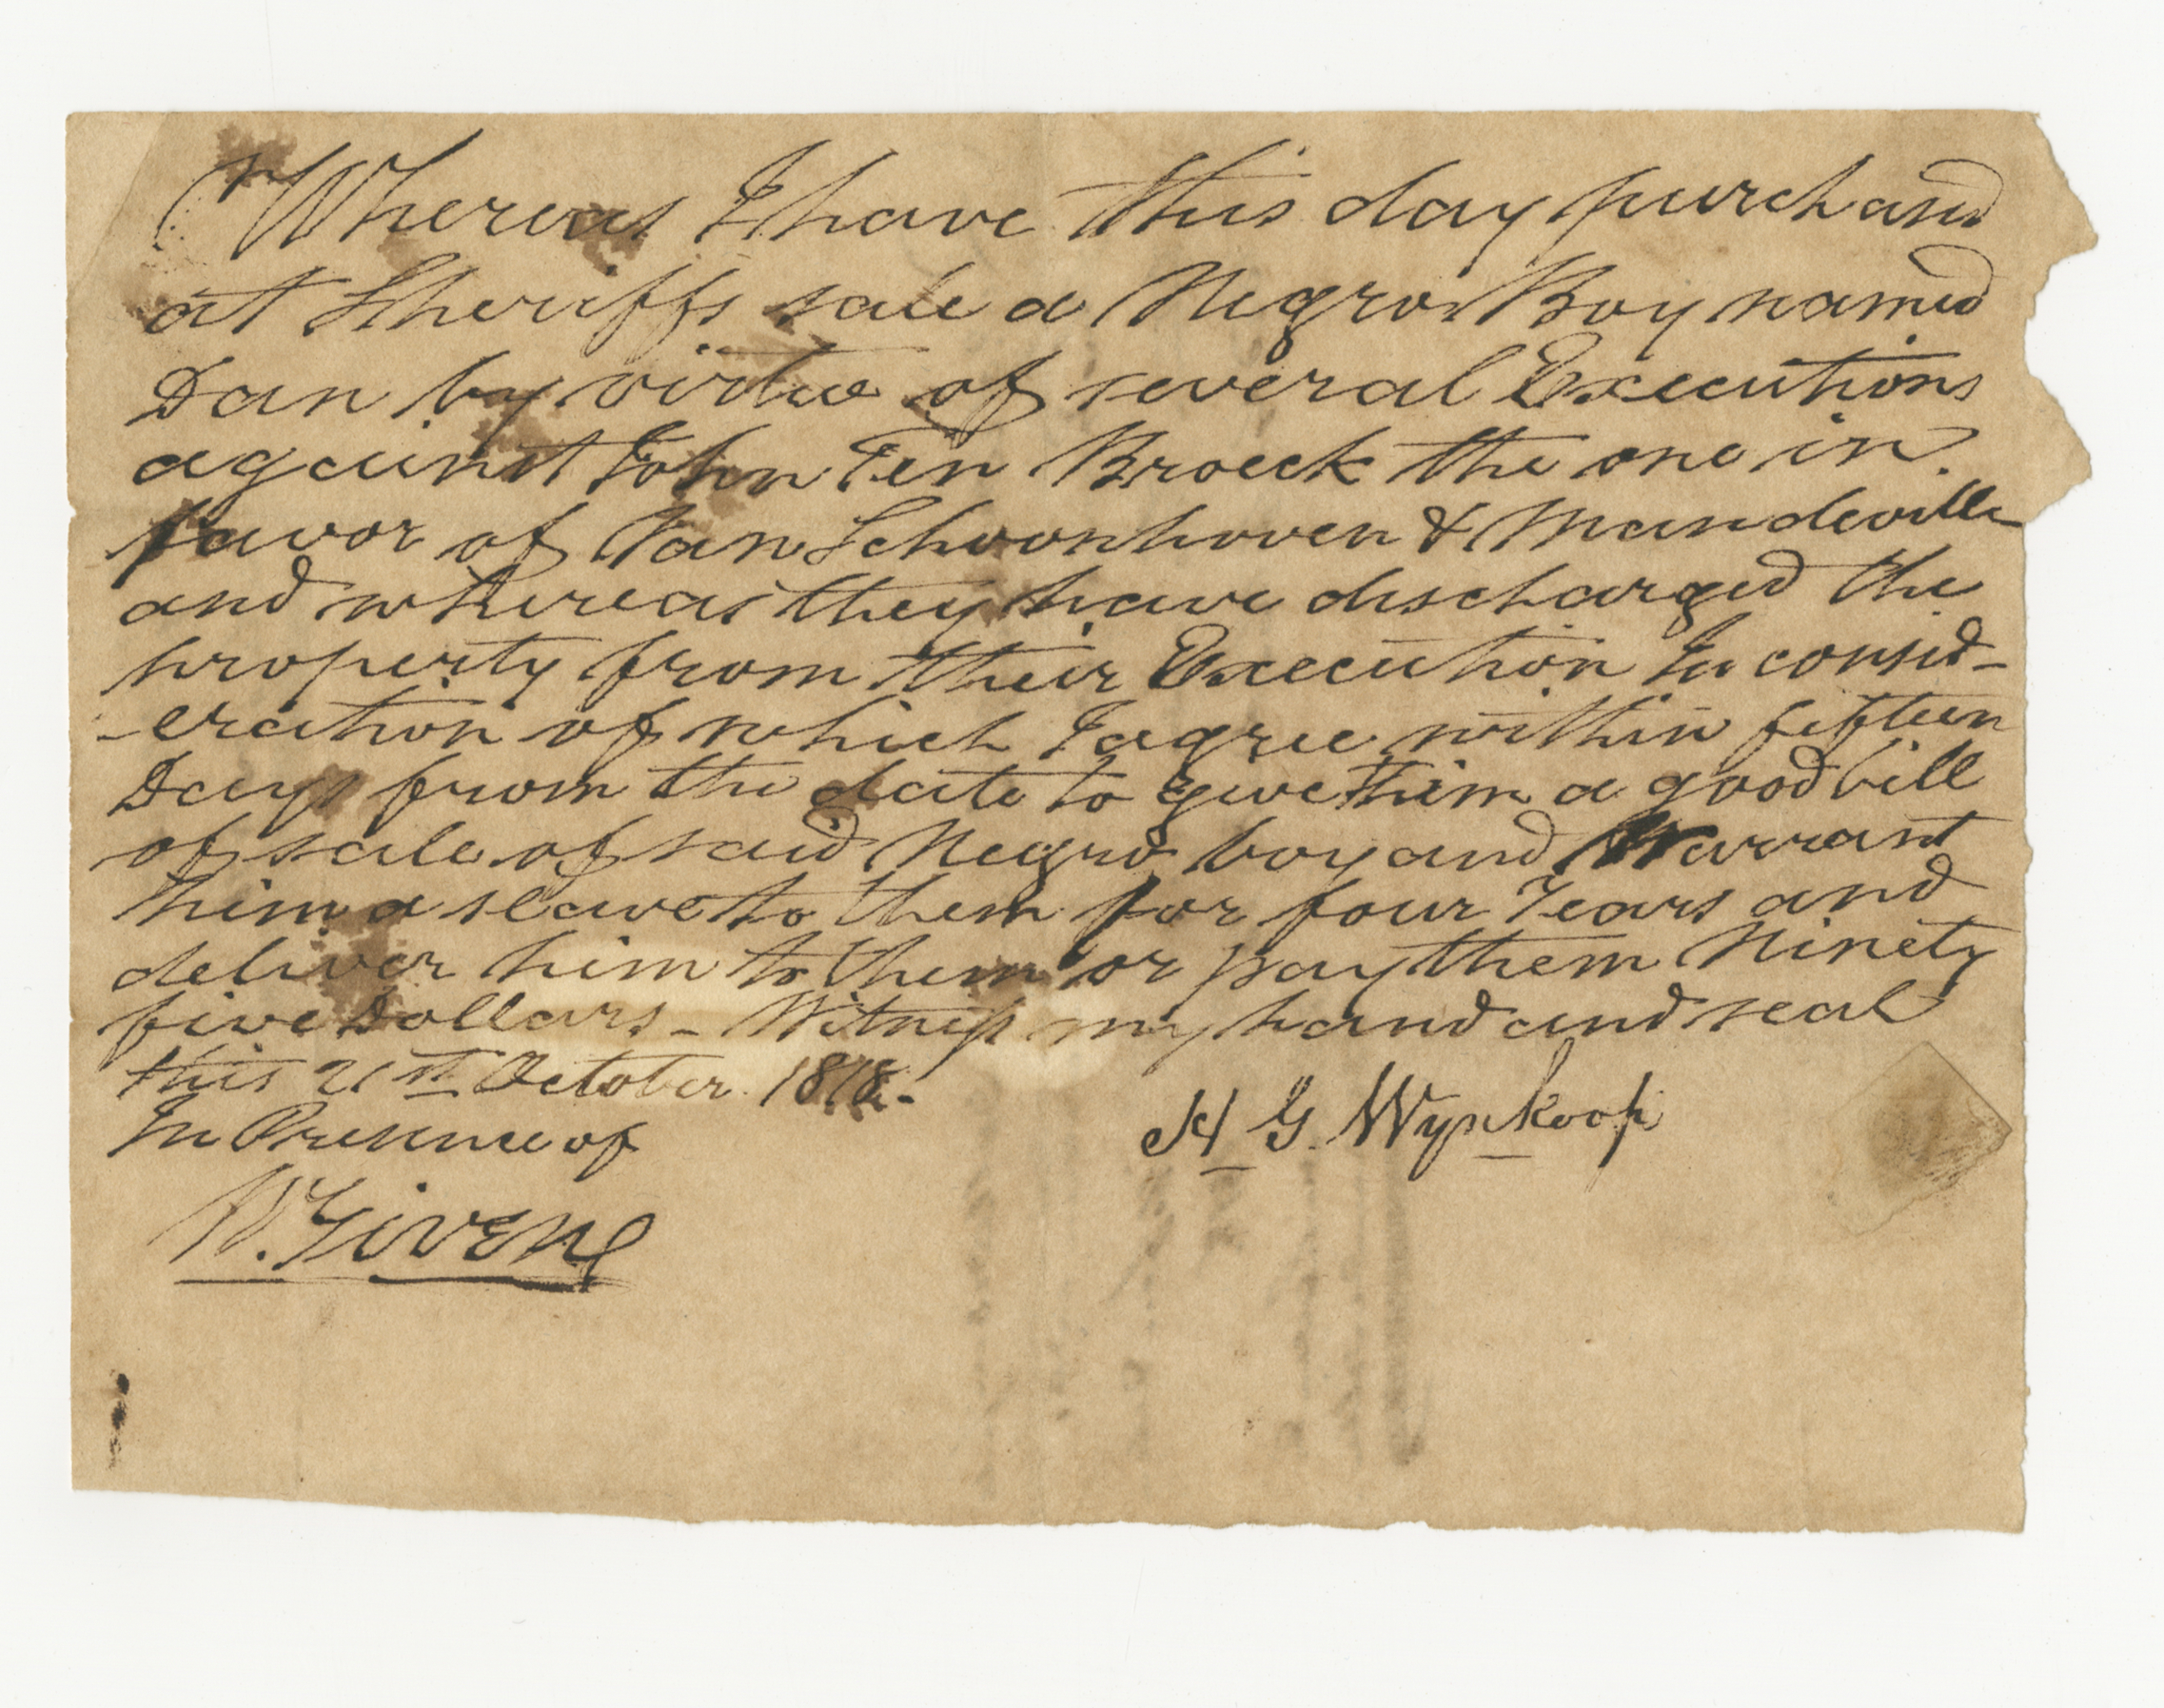 Whereas I have this day purchased
at Sheriffs sale a Negro Boy named
Dan by virtue of several Executions
against John Ten Broeck the one in
favor of Van Schoonhoven & Mandeville
and whereas they have discharged the
property from their Execution In consid-
-eration of which I agree within fifteen
Days from the date to give them a good bill
of sale of said Negro boy and Warrant
him a slave to them for four Years and
deliver him to them or pay them Ninety
five Dollars - Witness my hand and seal
this 21st October 1818.
In Presence of
H G. Wynkoop
W. Givens